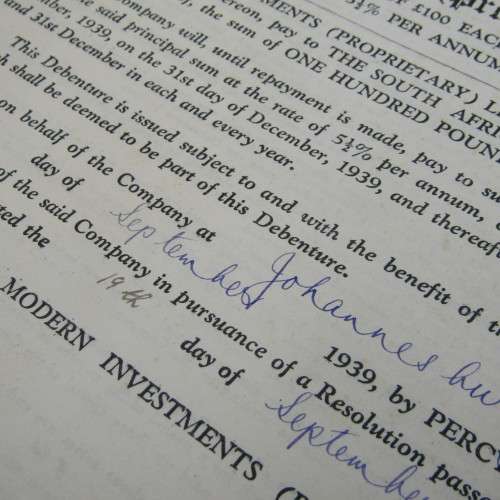 of £100 EACH
5¼% PER ANNUM
hereon, pay to THE SOUTH AFRI
MENTS (PROPRIETARY) LI
), the sum of ONE HUNDRED POUN
Company will, until repayment is made, pay to su
he said principal sum at the rate of 5¼% per annum,
mber, 1939, on the 31st day of December, 1939, and thereafter
and 31st December in each and every year.
This Debenture is issued subject to and with the benefit of th
ch shall be deemed to be part of this Debenture.
on behalf of the Company at Johannesbu
day of September 1939, by PERCY
of the said Company in pursuance of a Resolution passe
ted the 19th day of September
MODERN INVESTMENTS (